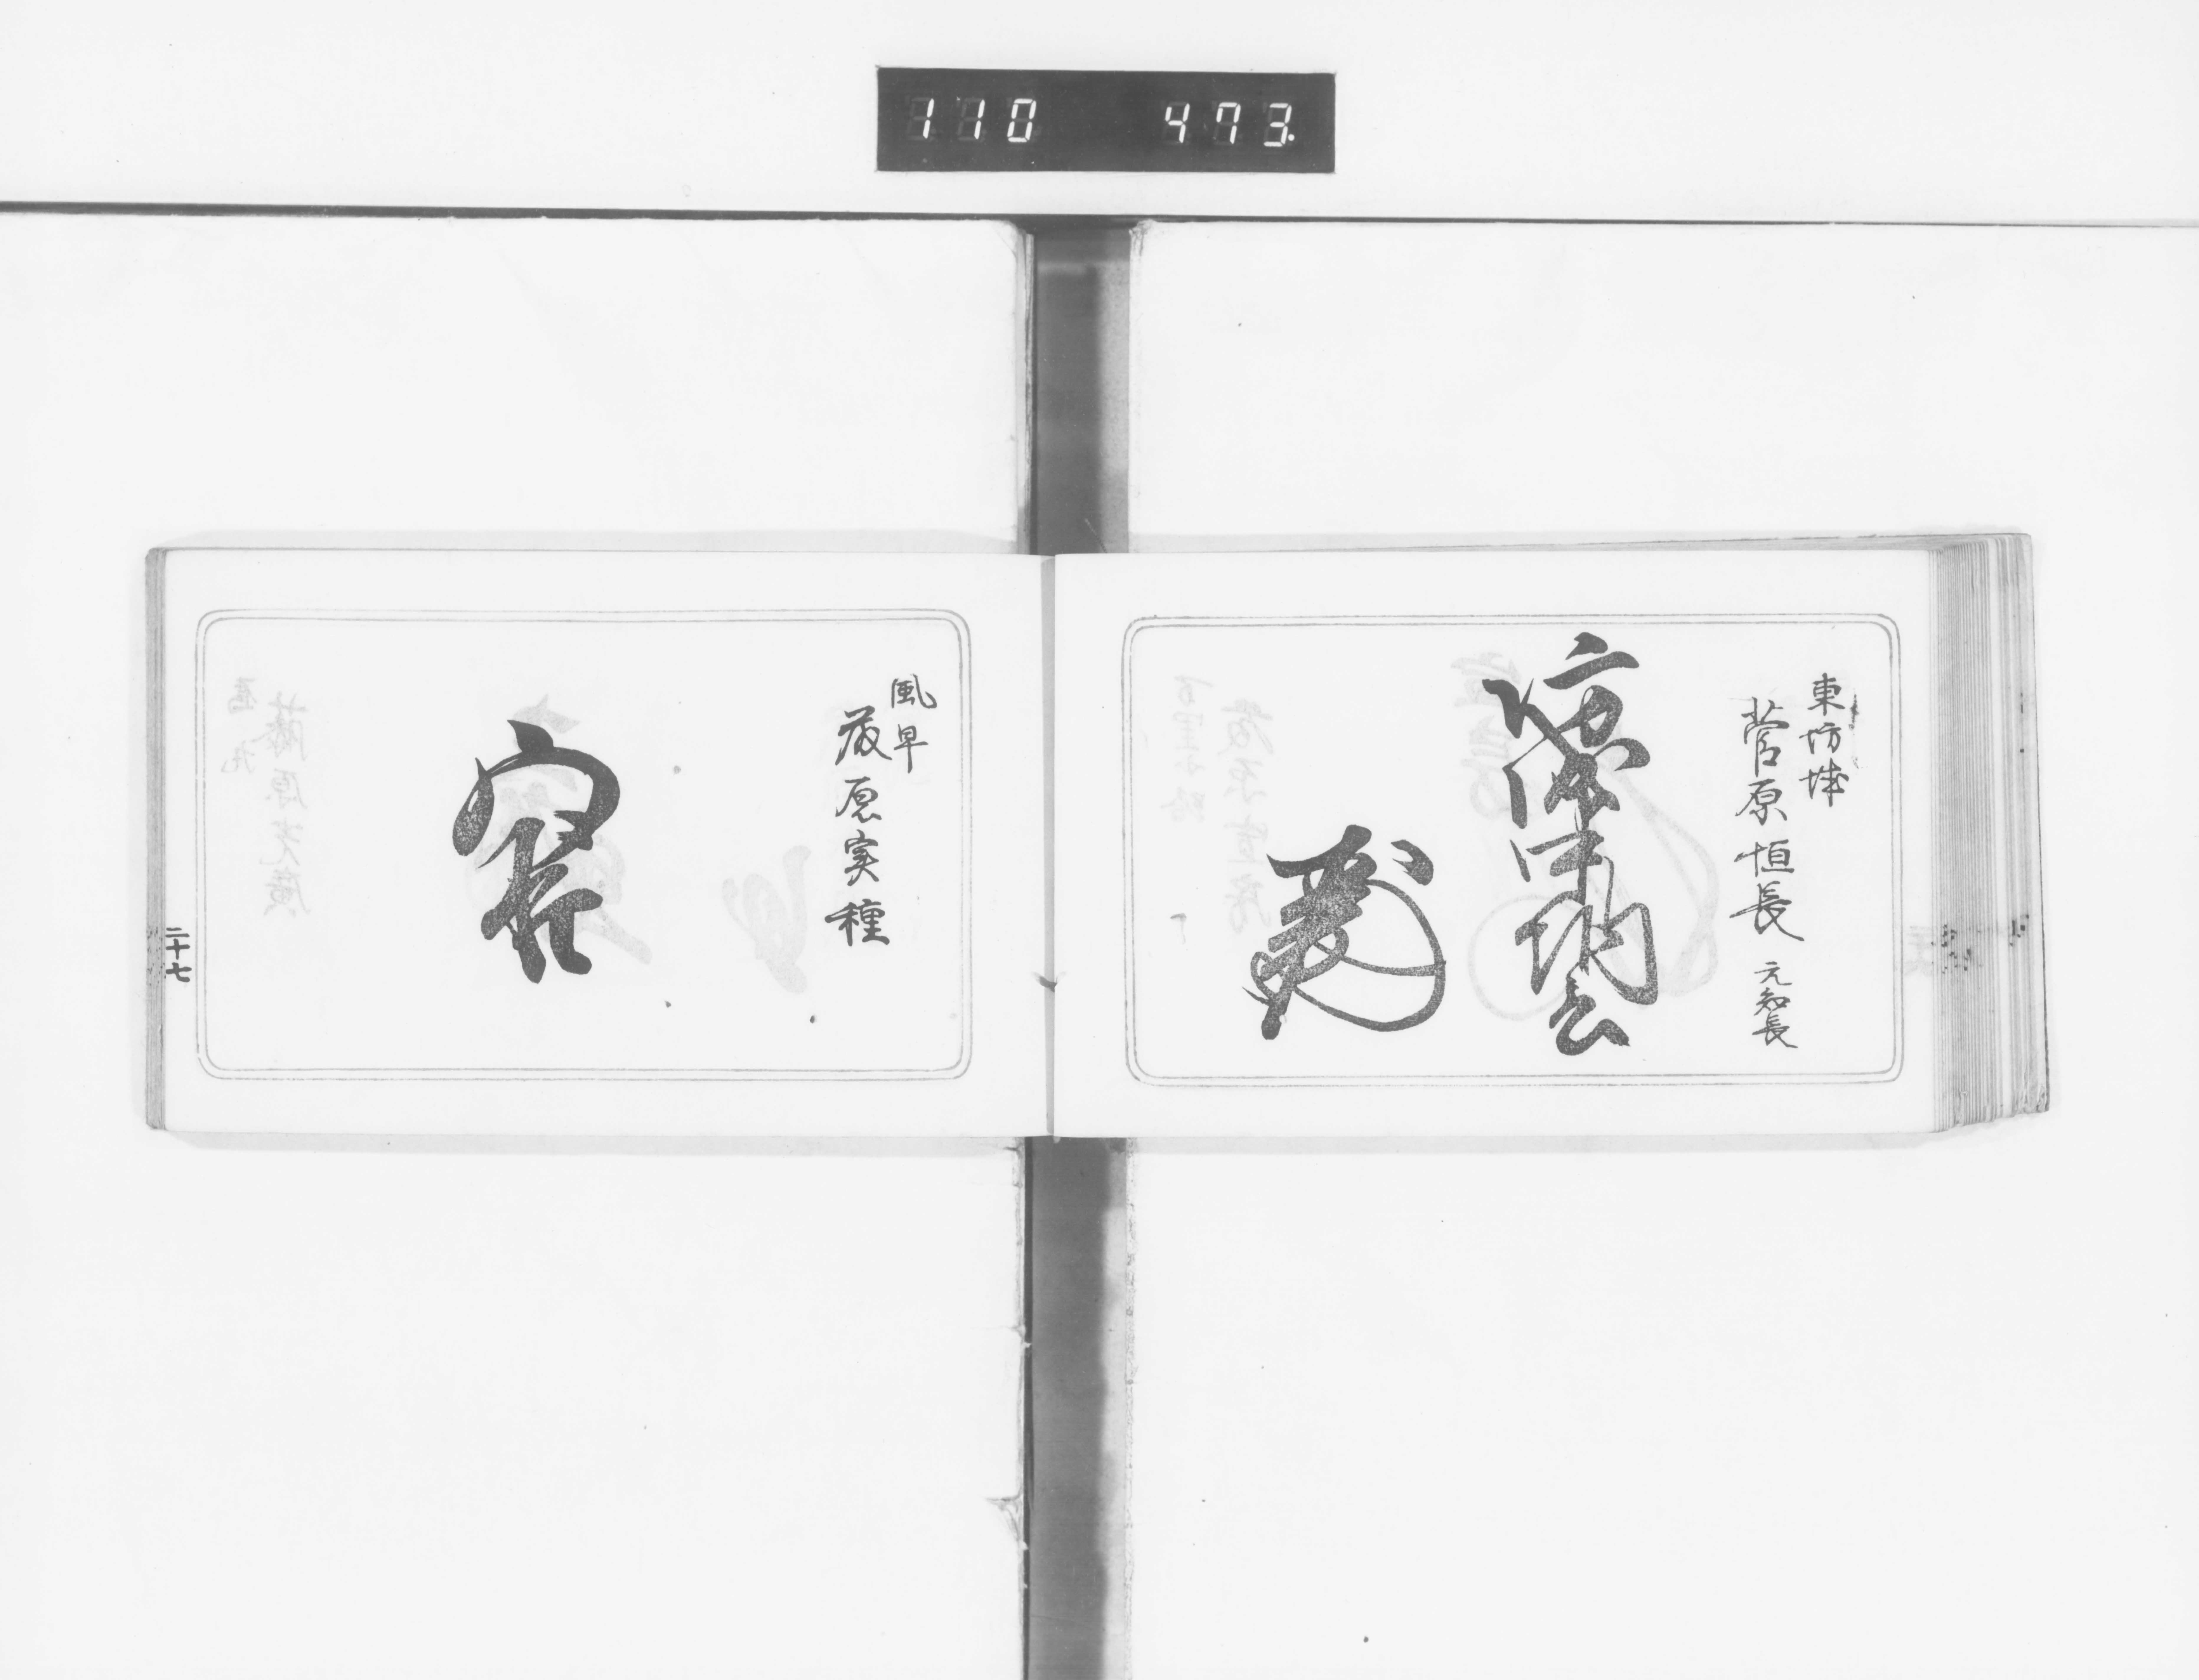 110 473.
東坊城
菅原恒長 元知長
坊城中納言
風早
藤原実種
二十七